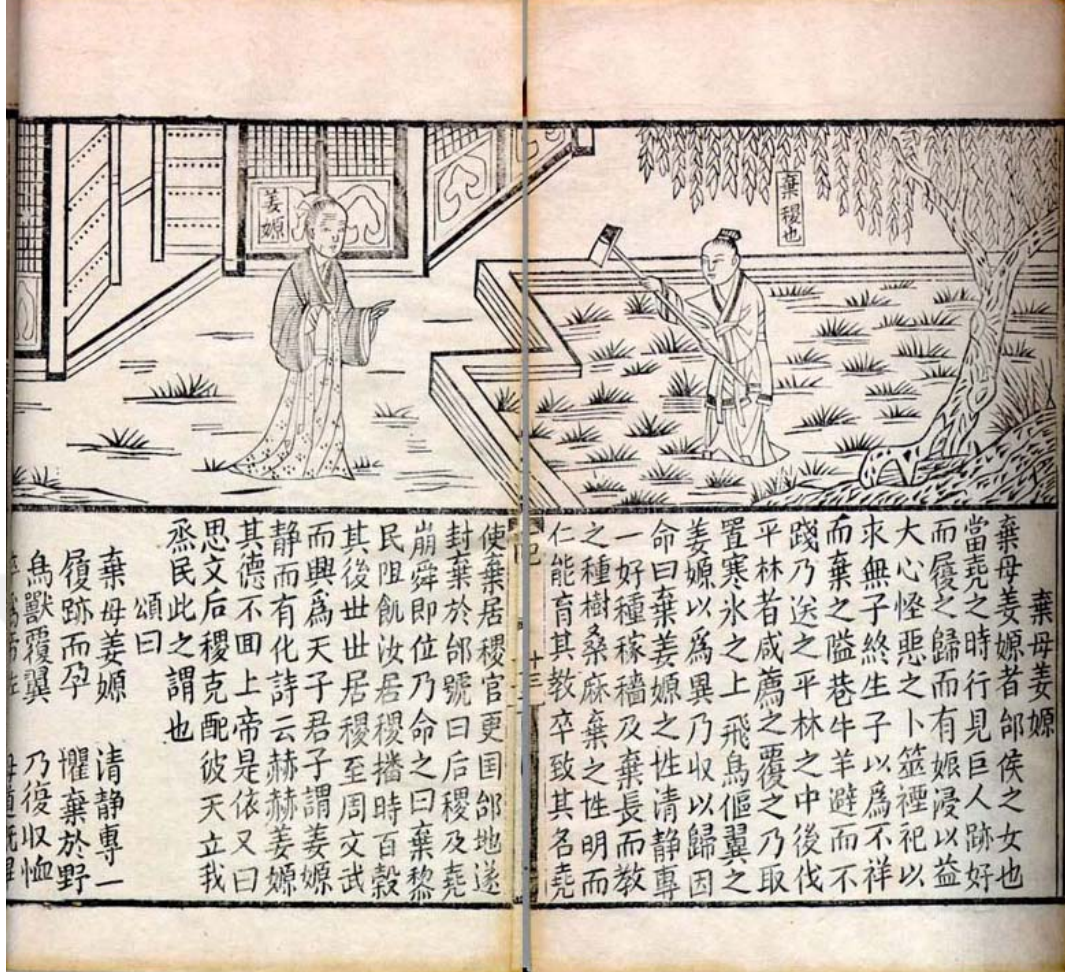 棄稷也
姜嫄
棄母姜嫄
棄母姜嫄者邰侯之女也
當堯之時行見巨人跡好
而履之歸而有娠浸以益
大心怪惡之卜筮禋祀以
求無子終生子以爲不祥
而棄之隘巷牛羊避而不
踐乃送之平林之中後伐
平林者咸薦之覆之乃取
置寒氷之上飛鳥傴翼之
姜嫄以爲異乃収以歸因
命曰棄姜嫄之性清静專
一好種稼穡及棄長而教
之種樹桑麻棄之性明而
仁能育其教卒致其名堯
十三
使棄居稷官更国邰地遂
封棄於邰號曰后稷及堯
崩舜即位乃命之曰棄黎
民阻飢汝居稷播時百穀
其後世世居稷至周文武
而興爲天子君子謂姜嫄
静而有化詩云赫赫姜嫄
其德不回上帝是依又曰
思文后稷克配彼天立我
烝民此之謂也
頌曰
棄母姜嫄 清静專一
履跡而孕 懼棄於野
鳥獸覆翼 乃復収恤